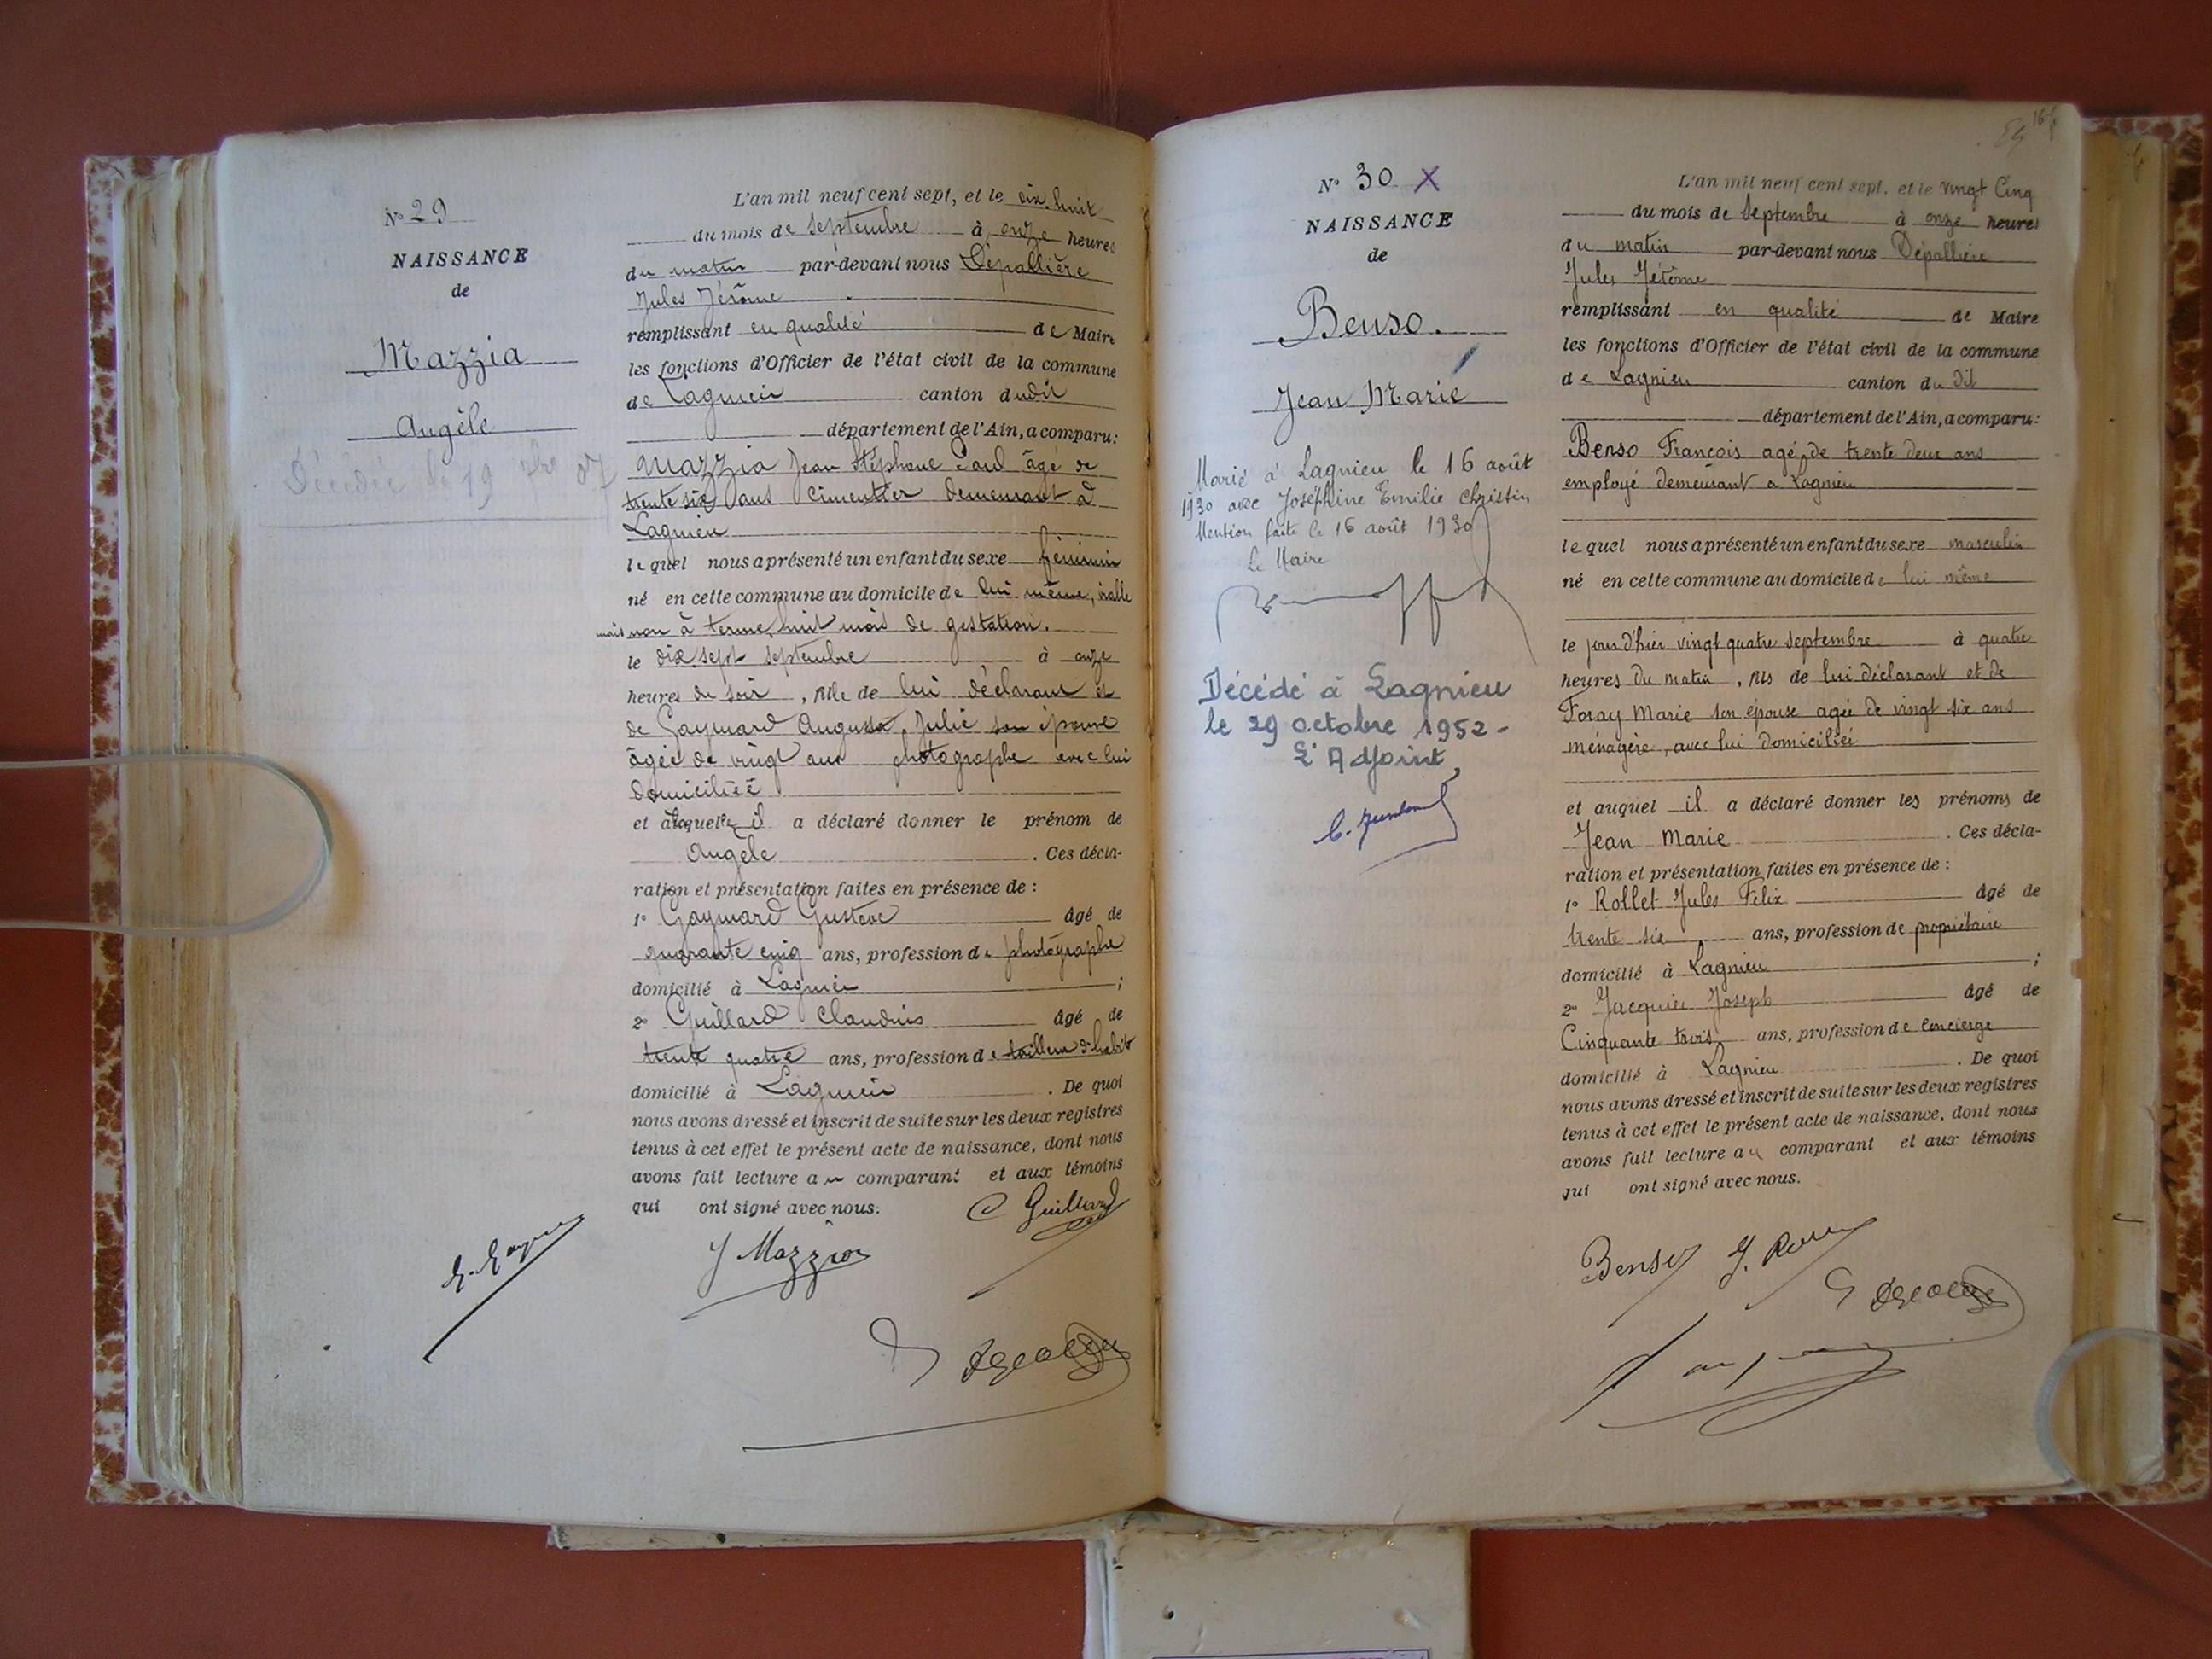 N° 29
NAISSANCE
de
Mazzia
Angèle
Décédée le 19 7bre 07
L'an mil neuf cent sept, et le dix huit
du mois de Septembre à onze heures
du matin par-devant nous Dépallière
Jules Jérôme
remplissant en qualité de Maire
les fonctions d'Officier de l'état civil de la commune
de Lagnieu canton dudit
département de l'Ain, a comparu:
Mazzia Jean Stéphane Paul âgé de
trente six ans cimentier demeurant à
Lagnieu
lequel nous a présenté un enfant du sexe féminin
né en cette commune au domicile de lui même, viable
mais non à terme, huit mois de gestation.
le dix sept septembre à onze
heures du soir, fille de lui déclarant et
de Gaymard Augusta, Julie son épouse
âgée de vingt ans photographe avec lui
domiciliée
et à laquelle il a déclaré donner le prénom de
Angèle. Ces décla-
ration et présentation faites en présence de :
1° Gaymard Gustave âgé de
quarante cinq ans, profession de photographe
domicilié à Lagnieu ;
2° Guillard Claudius âgé de
trente quatre ans, profession de tailleur d'habits
domicilié à Lagnieu. De quoi
nous avons dressé et inscrit de suite sur les deux registres
tenus à cet effet le présent acte de naissance, dont nous
avons fait lecture au comparant et aux témoins
qui ont signé avec nous.
C Guillard
J Mazzia
N° 30 X
NAISSANCE
de
Benso.
Jean Marie
Marié à Lagnieu le 16 août
1930 avec Joséphine Emilie Christin
Mention faite le 16 août 1930
Le Maire
Décédé à Lagnieu
le 29 octobre 1952 -
L'Adjoint,
L'an mil neuf cent sept, et le vingt Cinq
du mois de Septembre à onze heures
du matin par-devant nous Dépallière
Jules Jérôme
remplissant en qualité de Maire
les fonctions d'Officier de l'état civil de la commune
de Lagnieu canton du dit
département de l'Ain, a comparu:
Benso François agé de trente deux ans
employé demeurant a Lagnieu
lequel nous a présenté un enfant du sexe masculin
né en cette commune au domicile de lui même
le jour d'hier vingt quatre septembre à quatre
heures du matin, fils de lui déclarant et de
Foray Marie son épouse agée de vingt six ans
ménagère, avec lui domiciliée
et auquel il a déclaré donner les prénoms de
Jean Marie. Ces décla-
ration et présentation faites en présence de :
1° Rollet Jules Félix âgé de
trente six ans, profession de propriétaire
domicilié à Lagnieu ;
2° Jacquier Joseph âgé de
Cinquante trois ans, profession de Concierge
domicilié à Lagnieu. De quoi
nous avons dressé et inscrit de suite sur les deux registres
tenus à cet effet le présent acte de naissance, dont nous
avons fait lecture au comparant et aux témoins
qui ont signé avec nous.
Benso